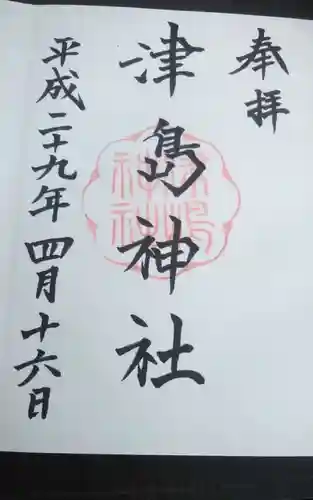 奉拝
津島神社
平成二十九年四月十六日